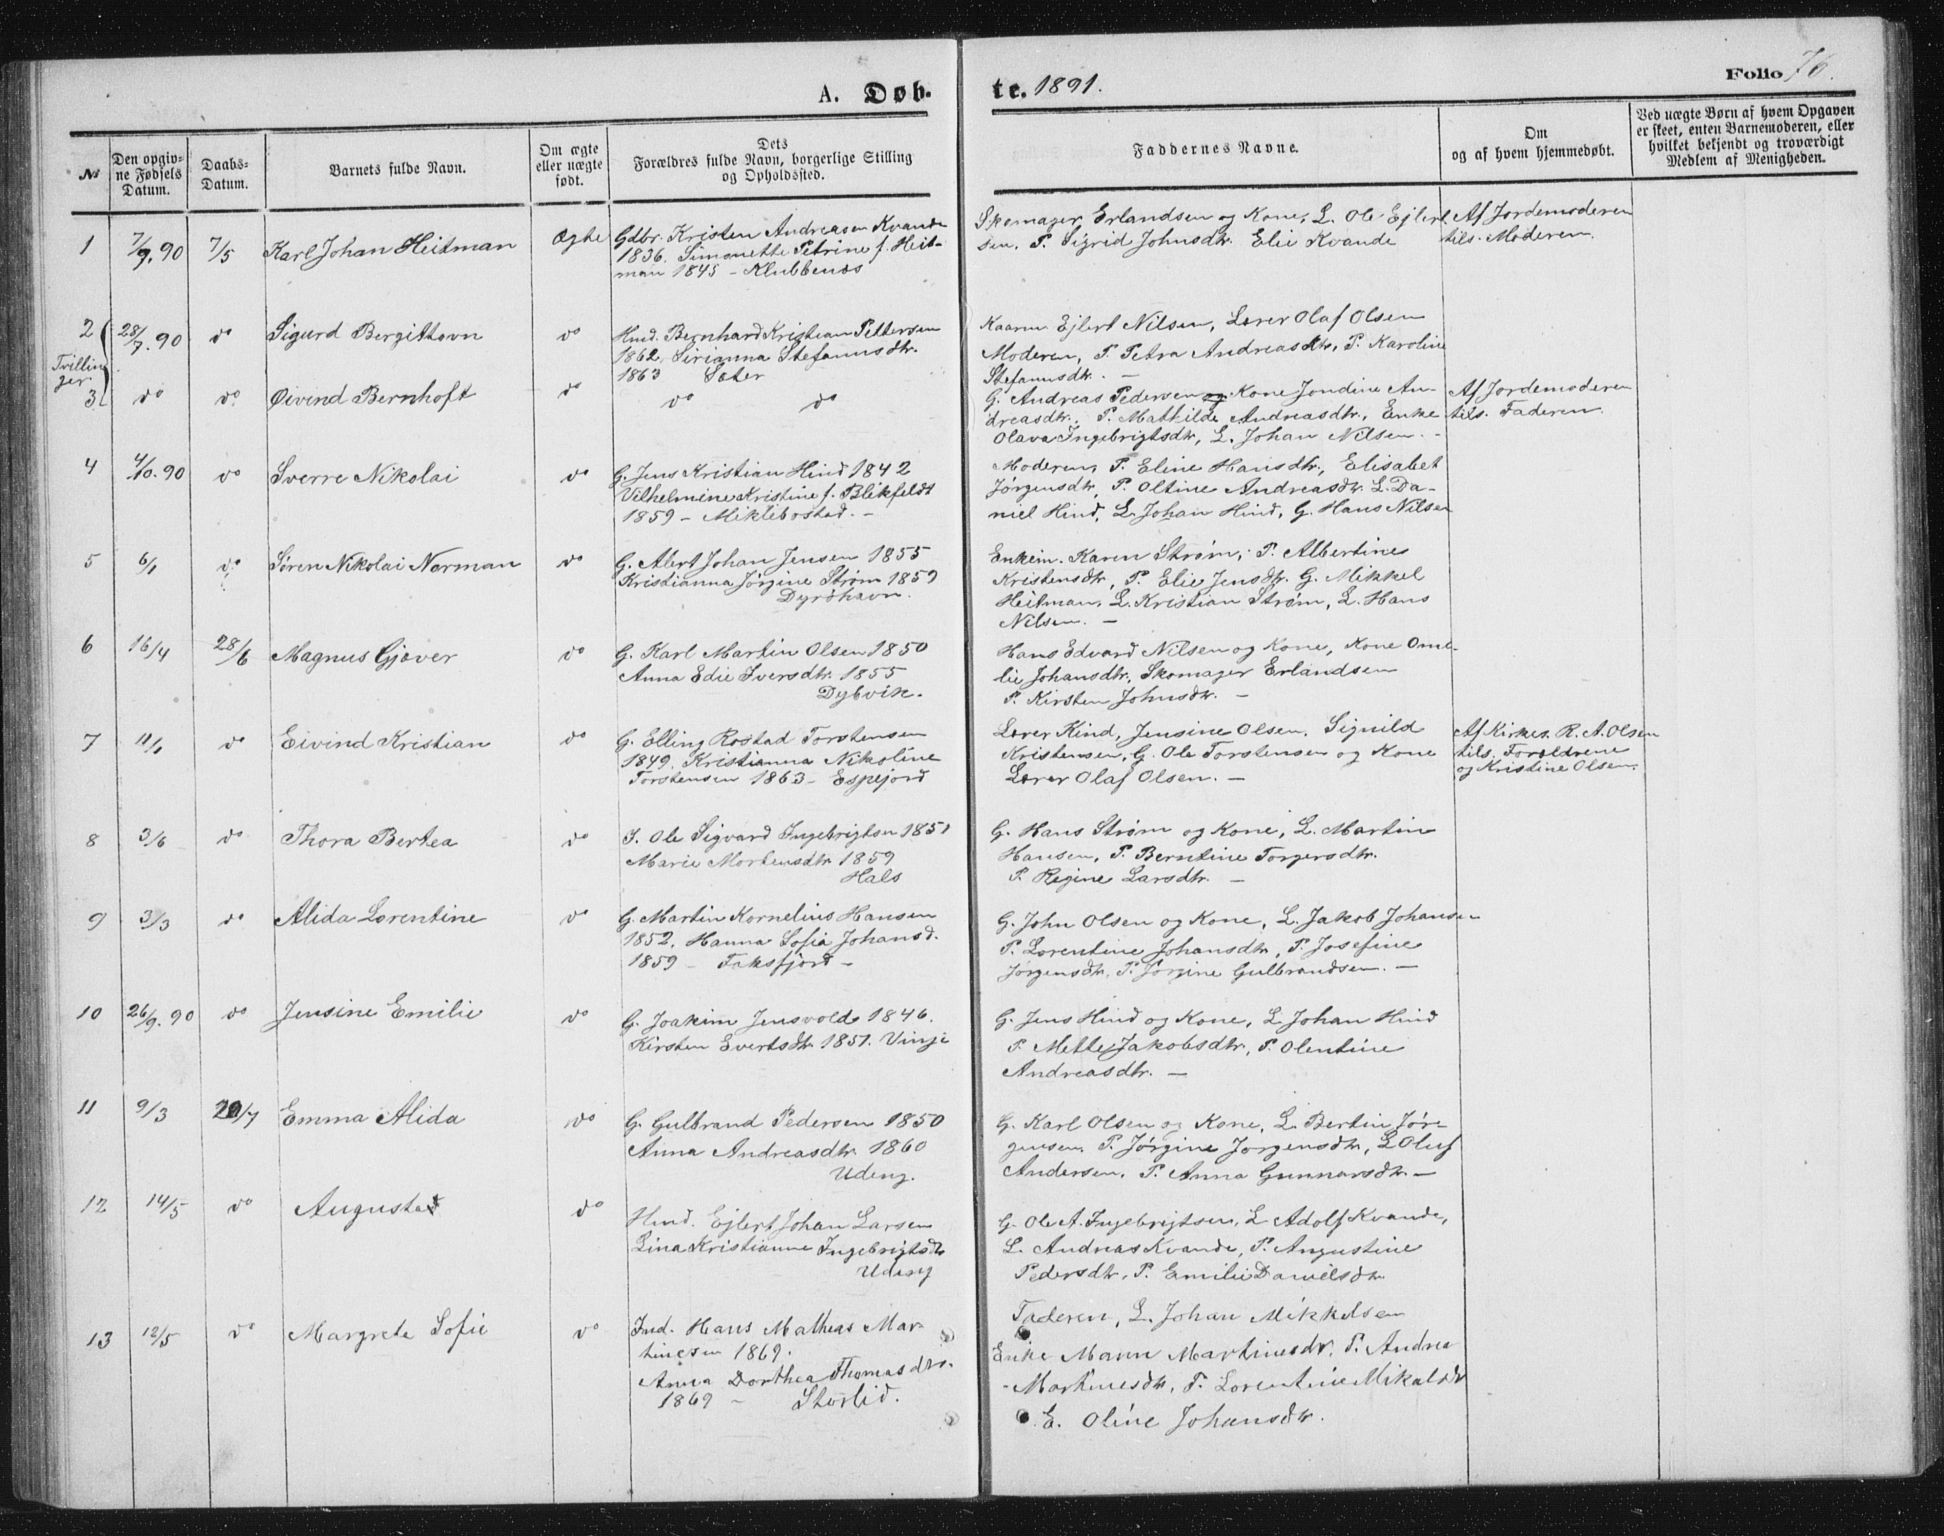 A. Døb-
te. 1891.
Folio 76.
№
Den opgiv-
ne Fødsels
Datum.
Daabs-
Datum.
Barnets fulde Navn.
Om ægte
eller uægte
født.
Dets
Forældres fulde Navn, borgerlige Stilling
og Opholdssted.
Faddernes Navne.
Om
og af hvem hjemmedøbt.
Ved uægte Børn af hvem Opgaven
er skeet, enten Barnemoderen, eller
hvilket bekjendt og troværdigt
Medlem af Menigheden.
1 7/9.90 7/5 Karl Johan Heitman Ægte
Gdbr. Kristen Andreasen Kvande
1836. Simonette Petrine f. Heit-
man 1845 - Klubbenæs
Skomager Erlandsen og Kone, L. Ole Ejlert
sen, P. Sigrid Johnsdtr. Elie Kvande
Af Jordemoderen
tils. Moderen.
2 28/7.90 do Sigurd Bergithon do
Tvillin
ger
Hmd. Bernhard Kristian Pettersen
1862, Sirianna Stefanusdtr.
1863 Sæter
Kaarm Ejlert Nilsen, Lærer Olaf Olsen
Moderen, P. Petra Andreasdtr, P. Karoline
Stefanusdtr. -
3 do do Øivind Bernhoft do
do do
G. Andreas Pedersen og Kone Jondine An-
dreasdtr, P. Mathilde Andreasdtr, Enke
Olava Ingebrigtsdtr, L. Johan Nilsen. -
Af Jordemoderen
tils. Faderen.
4 4/10.90 do Sverre Nikolai do
G. Jens Kristian Hind 1842
Vilhelmine Kristine f. Blikfeldt
1859 - Miklebostad. -
Moderen, P. Eline Hansdtr, Elisabet
Jørgensdtr, P. Oltine Andreasdtr. L. Da-
niel Hind, L. Johan Hind, G. Hans Nilsen
5 6/1 do Søren Nikolai Norman do
G. Alert Johan Jensen 1855
Kristianna Jørgine Strøm 1859
Dyrøhavn.
Enkem. Karen Strøm, P. Albertine
Kristensdtr, P. Elie Jensdtr. G. Mikkel
Heitman, L. Kristian Strøm, L. Hans
Nilsen. -
6 16/4 28/6 Magnus Gjæver do
G. Karl Martin Olsen 1850
Anna Edie Iversdtr. 1855
Dybvik.
Hans Edvard Nilsen og Kone, Kone Ome-
lie Johansdtr, Skomager Erlandsen
P. Kirsten Johnsdtr. -
7 11/1 do Eivind Kristian do
G. Elling Rostad Torstensen
1849. Kristianna Nikoline
Torstensen 1863 - Espejord
Lærer Kind, Jensine Olsen, Signild
Kristensen, G. Ole Torstensen og Kone
Lærer Olaf Olsen. -
Af Kirkes. R. A. Olsen
tils. Forældrene
og Kristine Olsen.
8 3/6 do Thora Bertea do
I. Ole Sigvard Ingebrigtsn 1851
Marie Mortensdtr 1859
Hals
G. Hans Strøm og Kone, L. Martin
Hansen, P. Berntine Torgersdtr.
P. Regine Larsdtr. -
9 3/3 do Alida Lorentine do
G. Martin Kornelius Hansen
1852, Hanna Sofia Johansd.
1859 - Faksfjord -
G. John Olsen og Kone, L. Jakob Johansen
P. Lorentine Johansdtr, P. Josefine
Jørgensdtr. P. Jørgine Gulbrandsen. -
10 26/9.90 do Jensine Emilie do
G. Joakim Jensvold 1846.
Kirsten Evertsdtr 1851. Vinje
G. Jens Hind og Kone, L Johan Hind
P. Mette Jakobsdtr, P. Olentine
Andreasdtr. -
11 9/3 20/7 Emma Alida do
G. Gulbrand Pedersen 1850
Anna Andreasdtr 1860
Udeng.
G. Karl Olsen og Kone, L. Bertin Jør-
gensen, P. Jørgine Jørgensdtr, L Oluf
Andersen, P. Anna Gunnarsdtr. -
12 14/5 do Augusta do
Hmd. Ejlert Johan Larsen
Lina Kristianne Ingebrigtsdtr
Udeng
G. Ole A. Ingebrigtsen, L Adolf Kvande,
L. Andreas Kvande, P. Augustine
Pedersdtr, P. Emilie Danielsdtr
13 12/5 do Margrete Sofie do
Ind. Hans Mathias Mar-
tinesen 1869.
Anna Dorthea Thomasdtr.
1869 - Storlid.
Faderen, L. Johan Mikkelsen
Enke Maren Martinesdtr. P. Andrea
Martinesdtr, P. Lorentine Mikalsdtr
E. Oline Johansdtr.